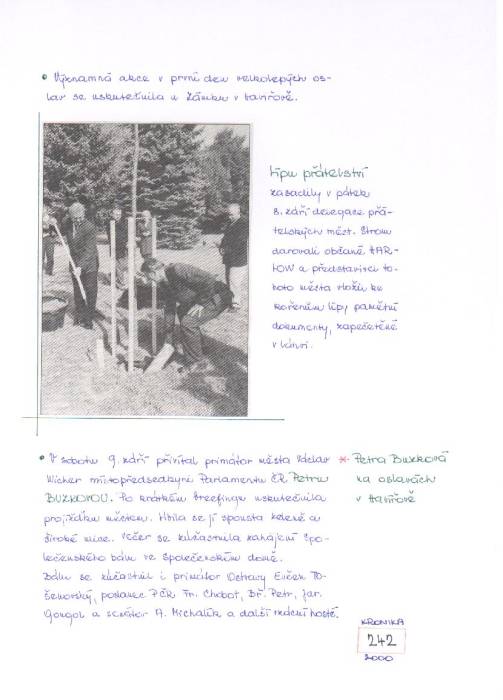 • Významná akce v první den velkolepých os-
lav se uskutečnila u Zámku v Havířově.
Lípu přátelství
zasadily v pátek
8. září delegace přá-
telských měst. Strom
darovali občané HAR-
LOW a představitelé to-
hoto města vložili ke
kořenům lípy pamětní
dokumenty, zapečetěné
v láhvi.
• V sobotu 9. září přivítal primátor města Václav
Wicher místopředsedkyni Parlamentu ČR Petru
BUZKOVOU. Po krátkém breefingu uskutečnila
projížďku městem. Líbila se jí spousta zeleně a
široké ulice. Večer se zúčastnila zahájení Spo-
lečenského bálu ve Společenském domě.
Bálu se zúčastnil i primátor Ostravy Evžen To-
šenovský, poslanec PČR Fr. Chobot, Bř. Petr, Jar.
Gongol a senátor A. Michalík a další vzácní hosté.
* Petra Buzková
na oslavách
v Havířově
KRONIKA
242
2000